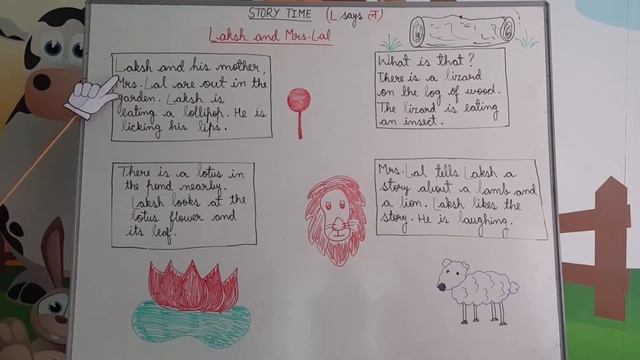 STORY TIME (L says ल)
Laksh and Mrs. Lal
Laksh and his mother,
Mrs. Lal are out in the
garden. Laksh is
eating a lollipop. He is
licking his lips.
What is that?
There is a lizard
on the log of wood.
The lizard is eating
an insect.
There is a lotus in
the pond nearby.
Laksh looks at the
lotus flower and
its leaf.
Mrs. Lal tells Laksh a
story about a lamb and
a lion. Laksh likes the
story. He is laughing.